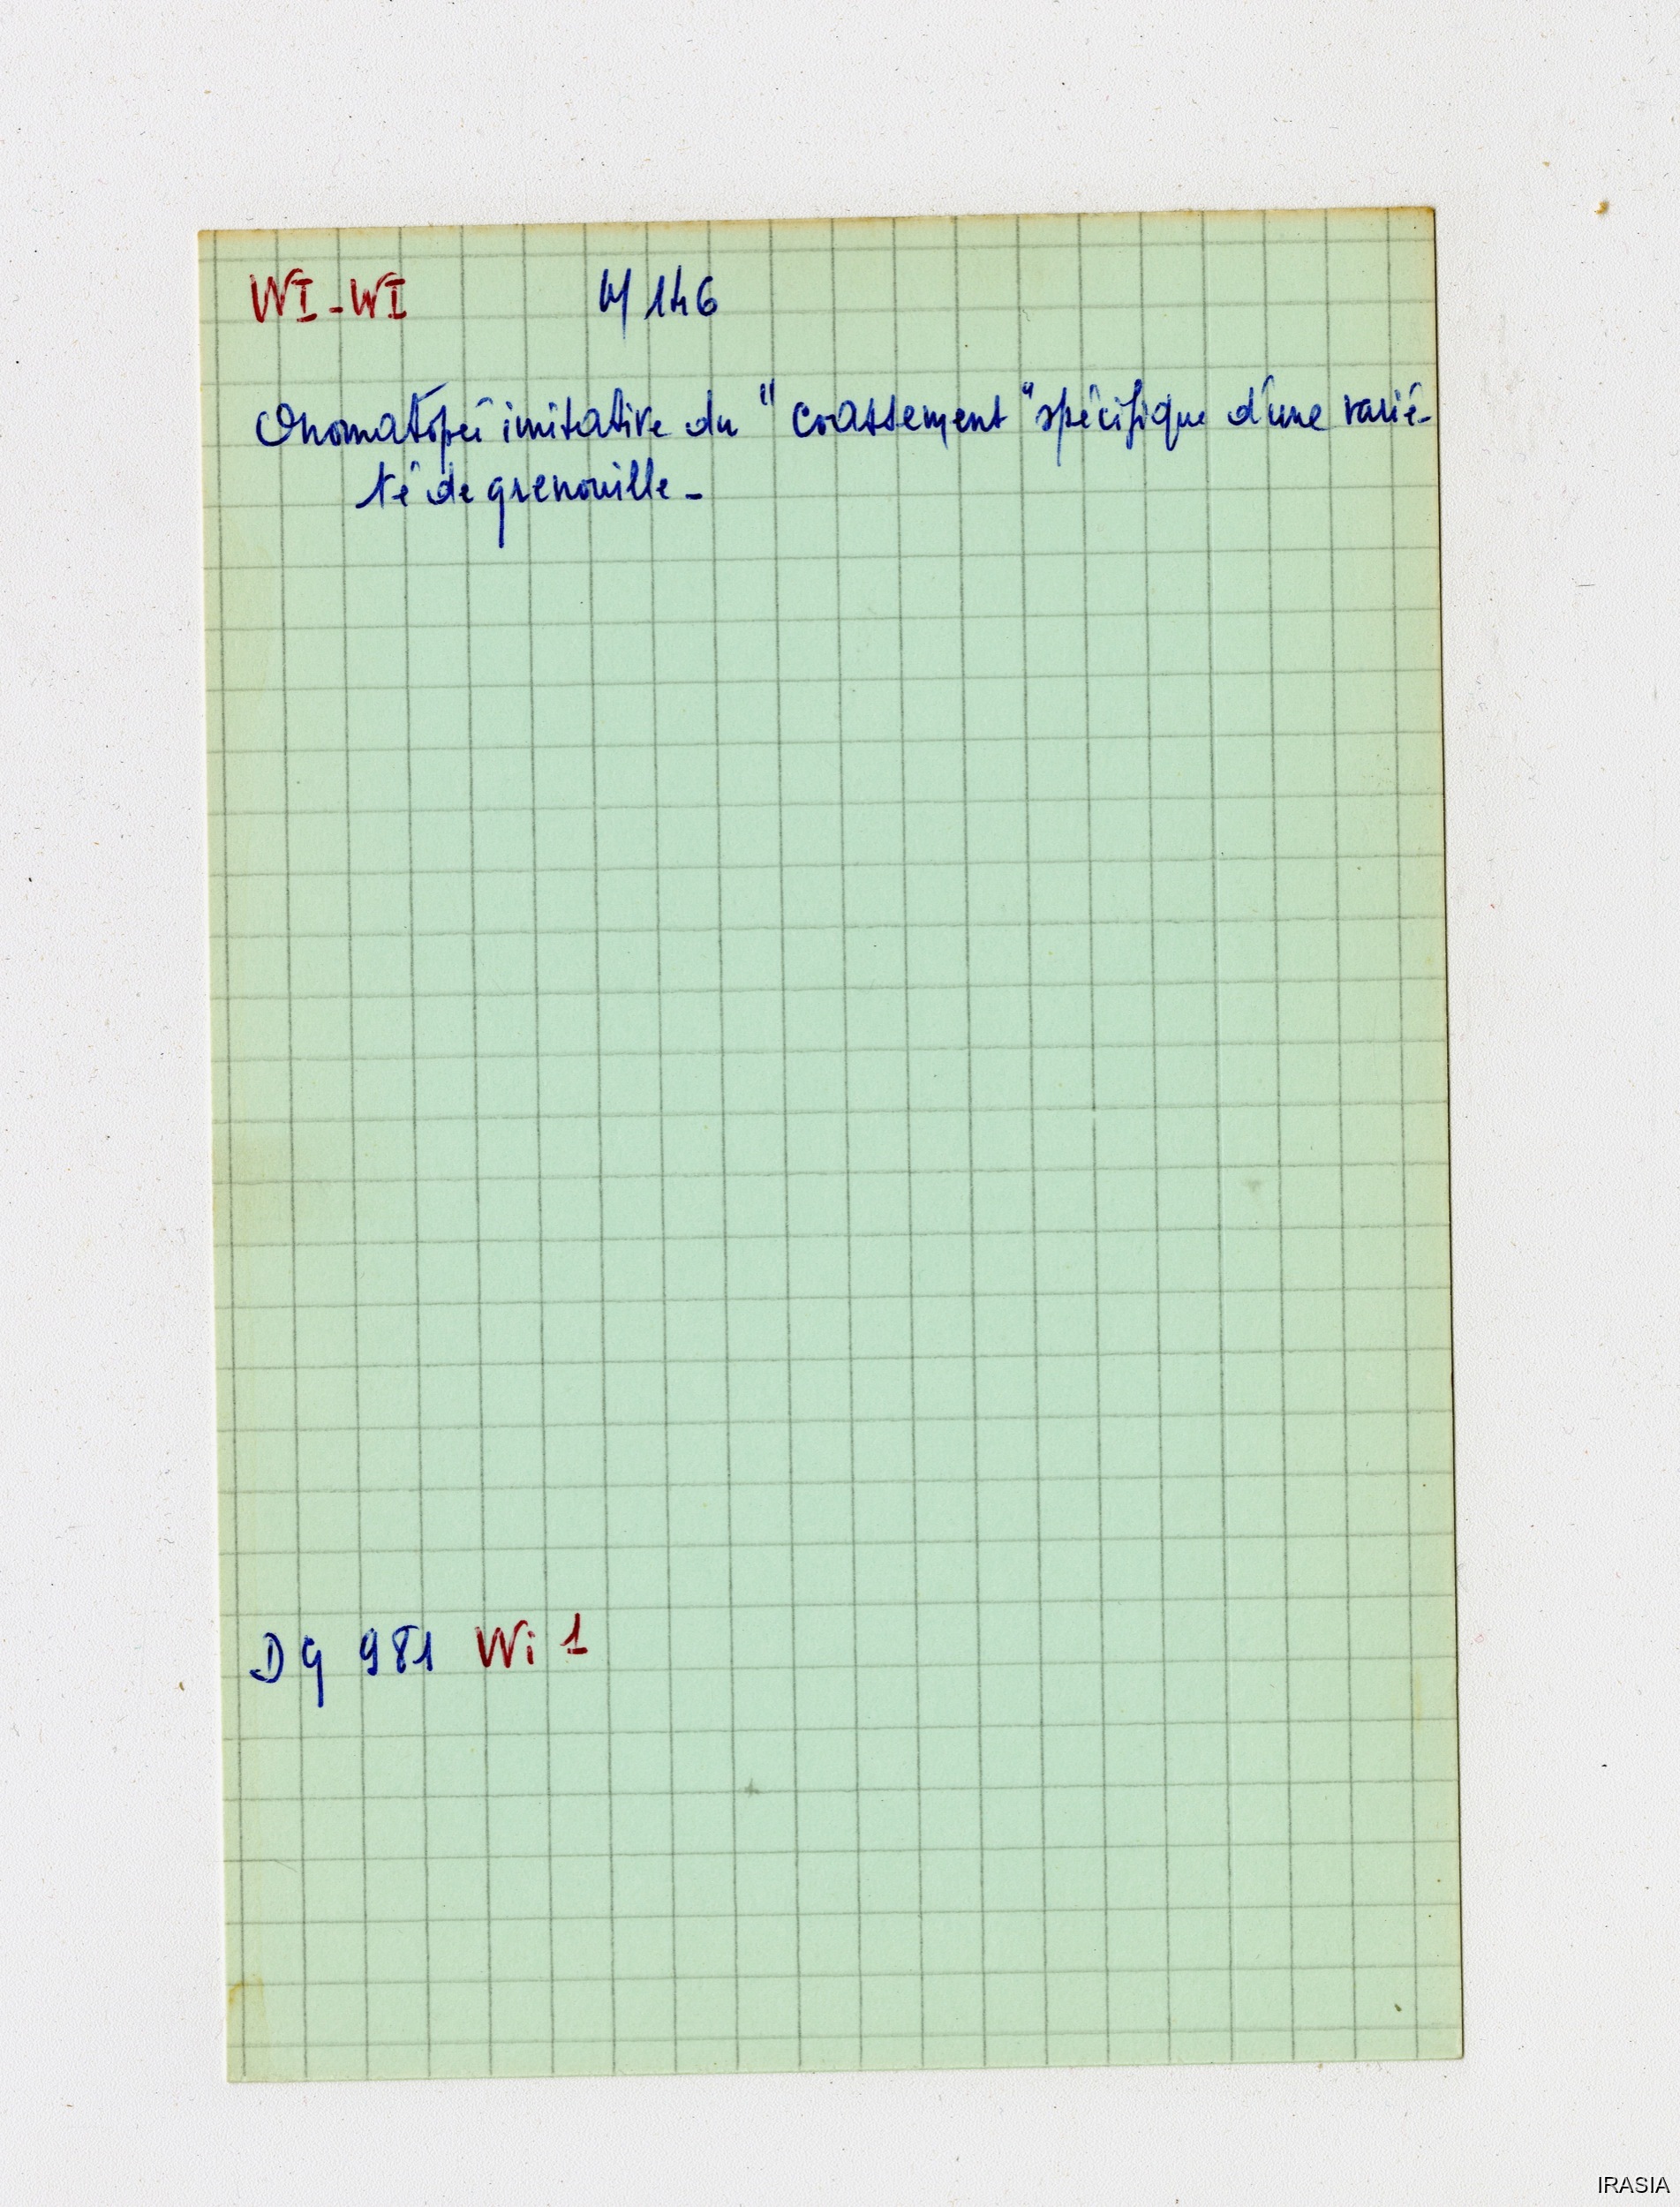 WI-WI M 146
Onomatopéé imitative du "coassement" spécifique d'une varié-
té de grenouille-
D 9 981 Wi 1
IRASIA